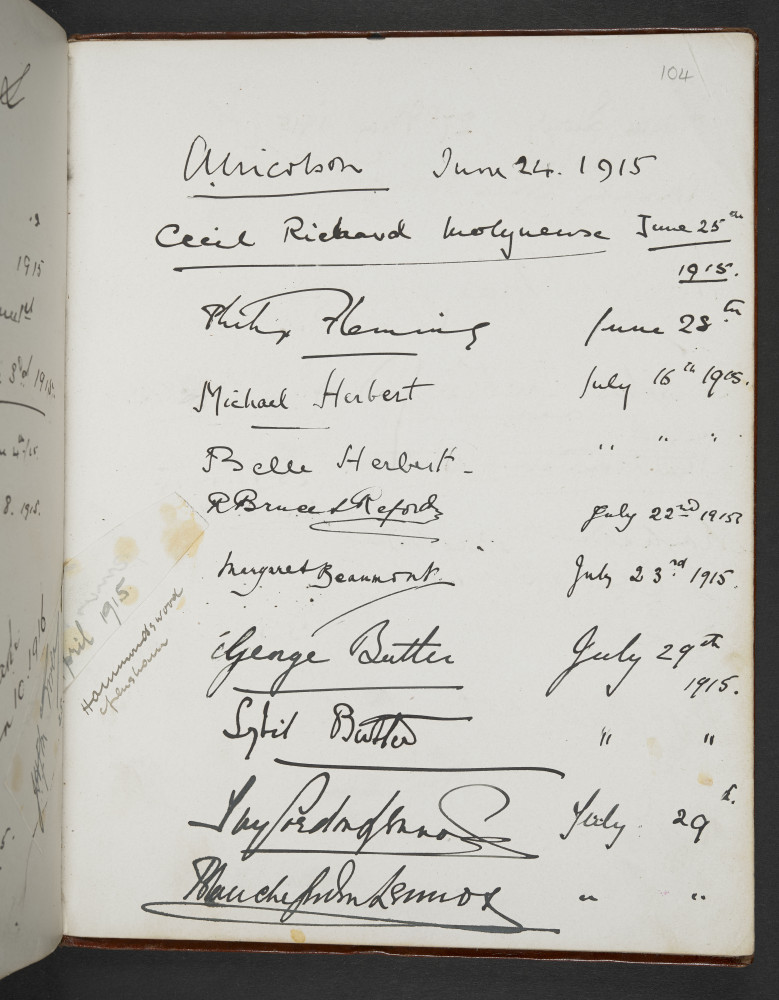 104
A Nicolson June 24. 1915
Cecil Richard Molyneux June 25th
1915.
Philip Fleming June 28th
Michael Herbert July 16th 1915.
Belle Herbert - " " "
R Bruce S Reford July 22nd 1915
Margaret Beaumont. July 23rd 1915.
George Butler July 29th
1915.
Sybil Butler " "
Gordon Lennox July 29th.
Blanche Gordon Lennox " "
April 1915
Hammondswood
1915
3rd 1915.
8. 1915.
10. 1916